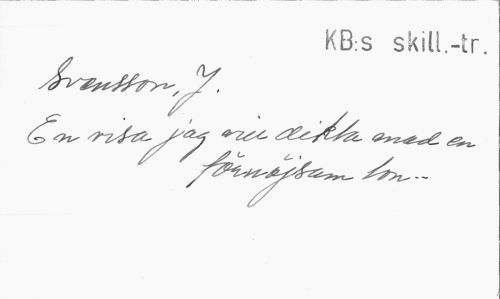 KB:s skill.-tr.
Svensson, J.
En visa jag vill dikta med en
förnöjsam ton--